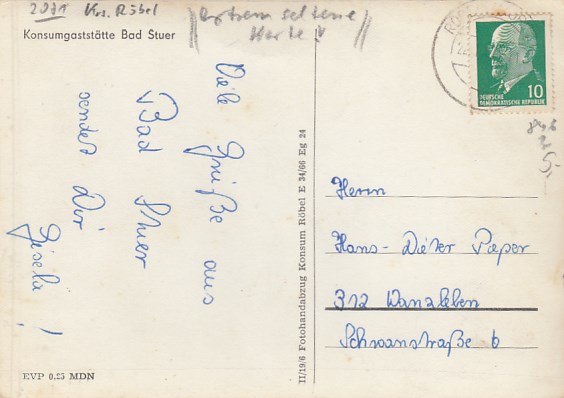 2071 Krs. Röbel
extrem seltene
Karte!
Konsumgaststätte Bad Stuer
Viele Grüße aus
Bad Stuer
sendet Dir
Gisela!
EVP 0,25 MDN
II/19/6 Fotohandabzug Konsum Röbel E 34/66 Eg 24
10
DEUTSCHE
DEMOKRATISCHE REPUBLIK
5,-
Herrn
Hans-Dieter Paper
312 Wanzleben
Schwanstraße 6